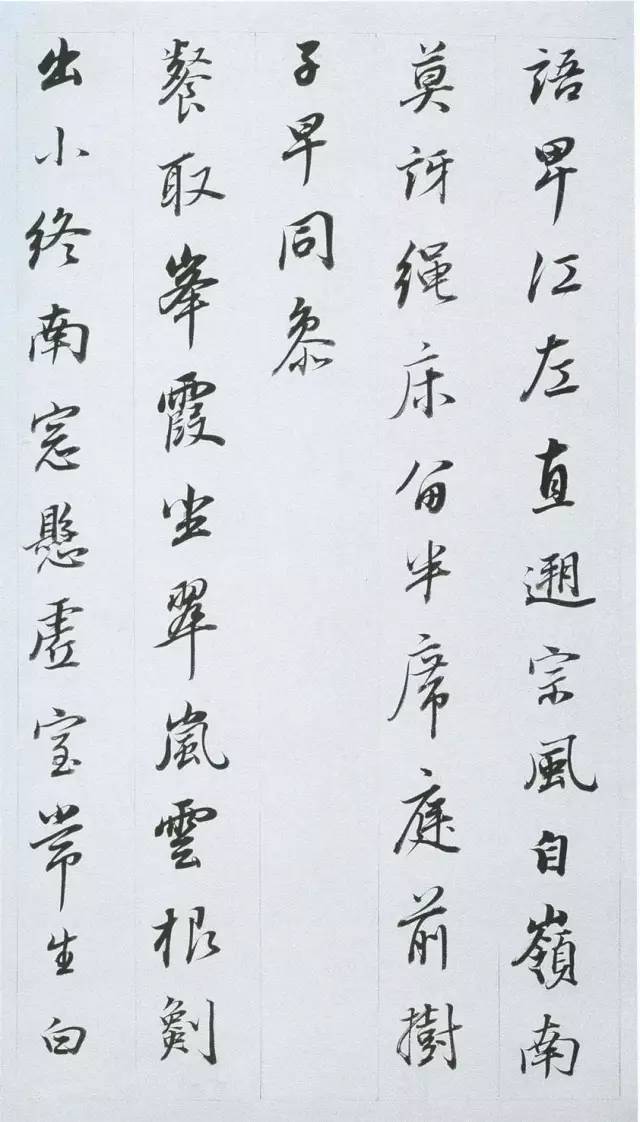 語卑江左直遡宗風自嶺南
莫訝繩床留半席庭前樹
子早同叅
餐取峯霞坐翠嵐雲根劖
出小終南窓懸虛室常生白